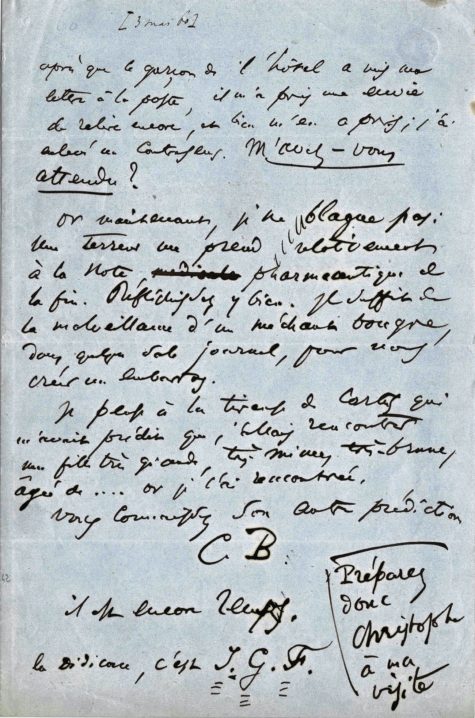 [3 mai 60]
après que le garçon de l'hôtel a mis ma
lettre à la poste, il m'a pris une envie
de relire encore, et bien m'en a pris; j'ai
enlevé un contresens. M'avez-vous
attendu?
Or maintenant, je ne blague pas:
une terreur me prend relativement
à la Note pharmaceutique de
la fin. Réfléchissez y bien. Il suffit de
la malveillance d'un méchant bougre,
dans quelque sale journal, pour nous
créer un embarras.
Je pense à la tireuse de Cartes qui
m'avait prédit que j'allais rencontrer
une fille très grande, très mince, très brune,
âgée de .... or je l'ai rencontrée.
Vous connaissez son autre prédiction
C B
il est encore temps.
la dédicace, c'est J. G. F.
Préparez
donc
Christophe
à ma
visite